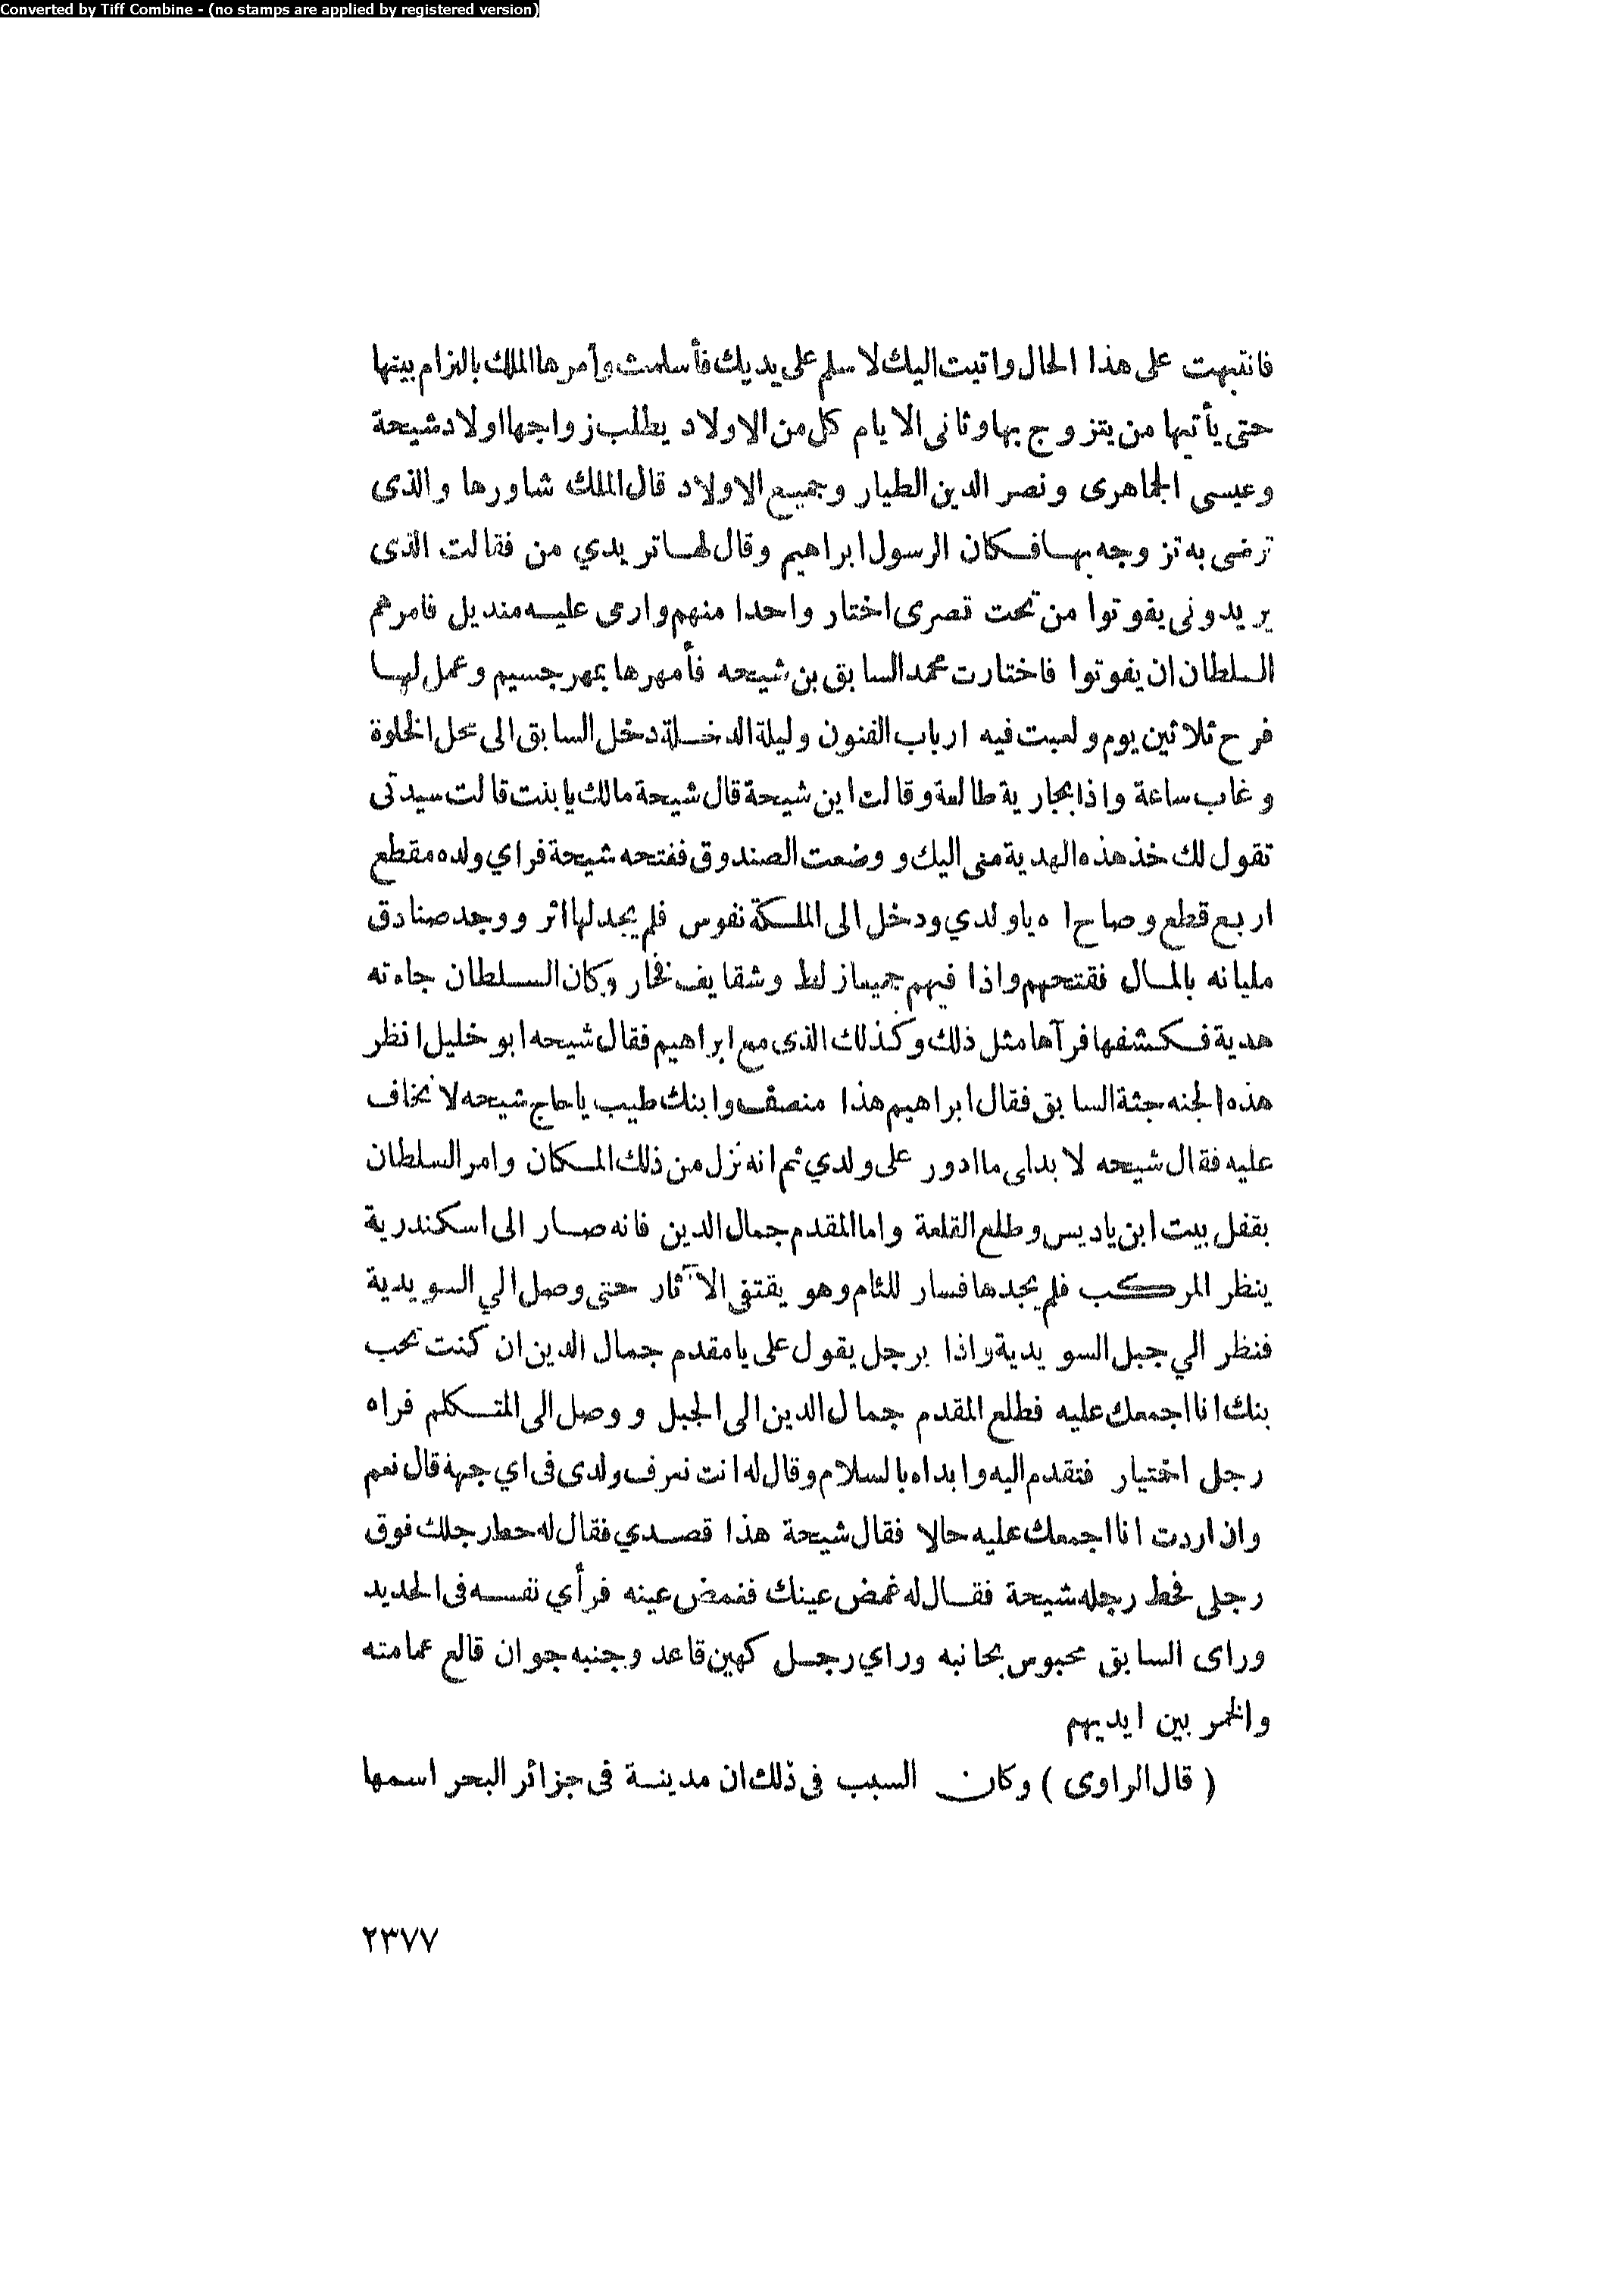 Converted by Tiff Combine - (no stamps are applied by registered version)
فانتبهت على هذا الحال واتيت اليك لاسلم على يديك فأسلمت وأمرها الملك بالزام بيتها
حتى يأتيها من يتزوج بها وثانى الايام كل من الاولاد يطلب زواجها اولاد شيحة
وعيسى الجماهرى ونصر الدين الطيار وجميع الاولاد قال الملك شاورها والذى
ترضى به تزوجه بها فكان الرسول ابراهيم وقال لها تريدي من فقالت الذى
يريدونى يفوتوا من تحت قصرى اختار واحدا منهم وارمى عليه منديل فامرهم
السلطان ان يفوتوا فاختارت محمد السابق بن شيحه فأمهرها بمهر جسيم وعمل لها
فرح ثلاثين يوم ولعبت فيه ارباب الفنون وليلة الدخلة دخل السابق الى محل الخلوة
وغاب ساعة واذا بجارية طالعة وقالت اين شيحة قال شيحة مالك يا بنت قالت سيدتى
تقول لك خذ هذه الهدية منى اليك و وضعت الصندوق ففتحه شيحة فراي ولده مقطع
اربع قطع وصاح اه ياولدي ودخل الى الملكة نفوس فلم يجد لها اثر ووجد صنادق
مليانه بالمال فقتحهم واذا فيهم جميعا زلط وشقايف فخار وكان السلطان جاءته
هدية فكشفها فرآها مثل ذلك وكذلك الذى مع ابراهيم فقال شيحه ابو خليل انظر
هذه الجنه جثة السابق فقال ابراهيم هذا منصف وابنك طيب ياحاج شيحه لا تخاف
عليه فقال شيحه لا بداى ما ادور على ولدي ثم انه نزل من ذلك المكان وامر السلطان
بقفل بيت ابن ياديس وطلع القلعة واما المقدم جمال الدين فانه صار الى اسكندرية
ينظر المركب فلم يجدها فسار للثام وهو يقتفى الآثار حتى وصل الي السويدية
فنظر الي جبل السويدية واذا برجل يقول على يامقدم جمال الدين ان كنت تحب
بنك انا اجمعك عليه فطلع المقدم جمال الدين الى الجبل ووصل الى المتكلم فراه
رجل اختيار فتقدم اليه وابداه بالسلام وقال له انت تعرف ولدى فى اي جهة قال نعم
وان اردت انا اجمعك عليه حالا فقال شيحة هذا قصدي فقال له حط رجلك فوق
رجلى فحط رجله شيحة فقال له غمض عينك فغمض عينه فرأي نفسه فى الحديد
وراى السابق محبوس بجانبه وراي رجل كهين قاعد وجنبه جوان قالع عمامته
والخمر بين ايديهم
( قال الراوى ) وكان السبب فى ذلك ان مدينة فى جزائر البحر اسمها
٢٣٧٧